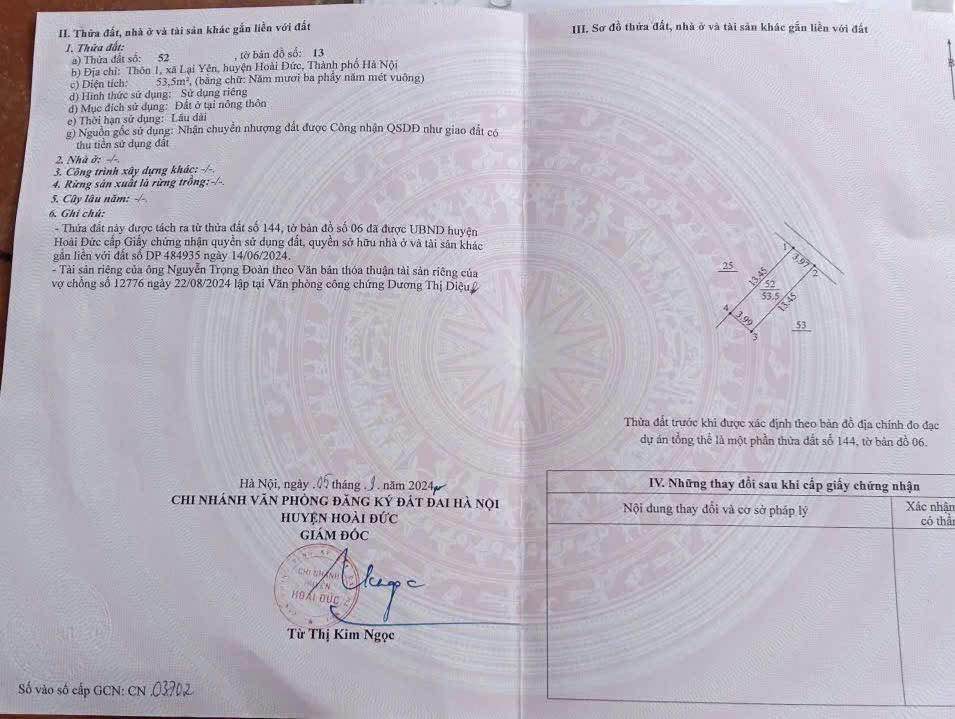 II. Thửa đất, nhà ở và tài sản khác gắn liền với đất
1. Thửa đất:
a) Thửa đất số: 52 , tờ bản đồ số: 13
b) Địa chỉ: Thôn 1, xã Lại Yên, huyện Hoài Đức, Thành phố Hà Nội
c) Diện tích: 53,5m², (bằng chữ: Năm mươi ba phẩy năm mét vuông)
d) Hình thức sử dụng: Sử dụng riêng
đ) Mục đích sử dụng: Đất ở tại nông thôn
e) Thời hạn sử dụng: Lâu dài
g) Nguồn gốc sử dụng: Nhận chuyển nhượng đất được Công nhận QSDĐ như giao đất có
thu tiền sử dụng đất
2. Nhà ở: -/-.
3. Công trình xây dựng khác: -/-.
4. Rừng sản xuất là rừng trồng: -/-.
5. Cây lâu năm: -/-.
6. Ghi chú:
- Thửa đất này được tách ra từ thửa đất số 144, tờ bản đồ số 06 đã được UBND huyện
Hoài Đức cấp Giấy chứng nhận quyền sử dụng đất, quyền sở hữu nhà ở và tài sản khác
gắn liền với đất số DP 484935 ngày 14/06/2024.
- Tài sản riêng của ông Nguyễn Trọng Đoàn theo Văn bản thỏa thuận tài sản riêng của
vợ chồng số 12776 ngày 22/08/2024 lập tại Văn phòng công chứng Dương Thị Diệu.
Hà Nội, ngày 05 tháng 9 năm 2024
CHI NHÁNH VĂN PHÒNG ĐĂNG KÝ ĐẤT ĐAI HÀ NỘI
HUYỆN HOÀI ĐỨC
GIÁM ĐỐC
CHI NHÁNH
HUYỆN
HOÀI ĐỨC
Từ Thị Kim Ngọc
Số vào sổ cấp GCN: CN 03702
III. Sơ đồ thửa đất, nhà ở và tài sản khác gắn liền với đất
B
1
3.97
2
25
13.45
52
53.5
13.45
4
3.99
3
53
Thửa đất trước khi được xác định theo bản đồ địa chính đo đạc
dự án tổng thể là một phần thửa đất số 144, tờ bản đồ 06.
IV. Những thay đổi sau khi cấp giấy chứng nhận
Nội dung thay đổi và cơ sở pháp lý
Xác nhận
có thẩm